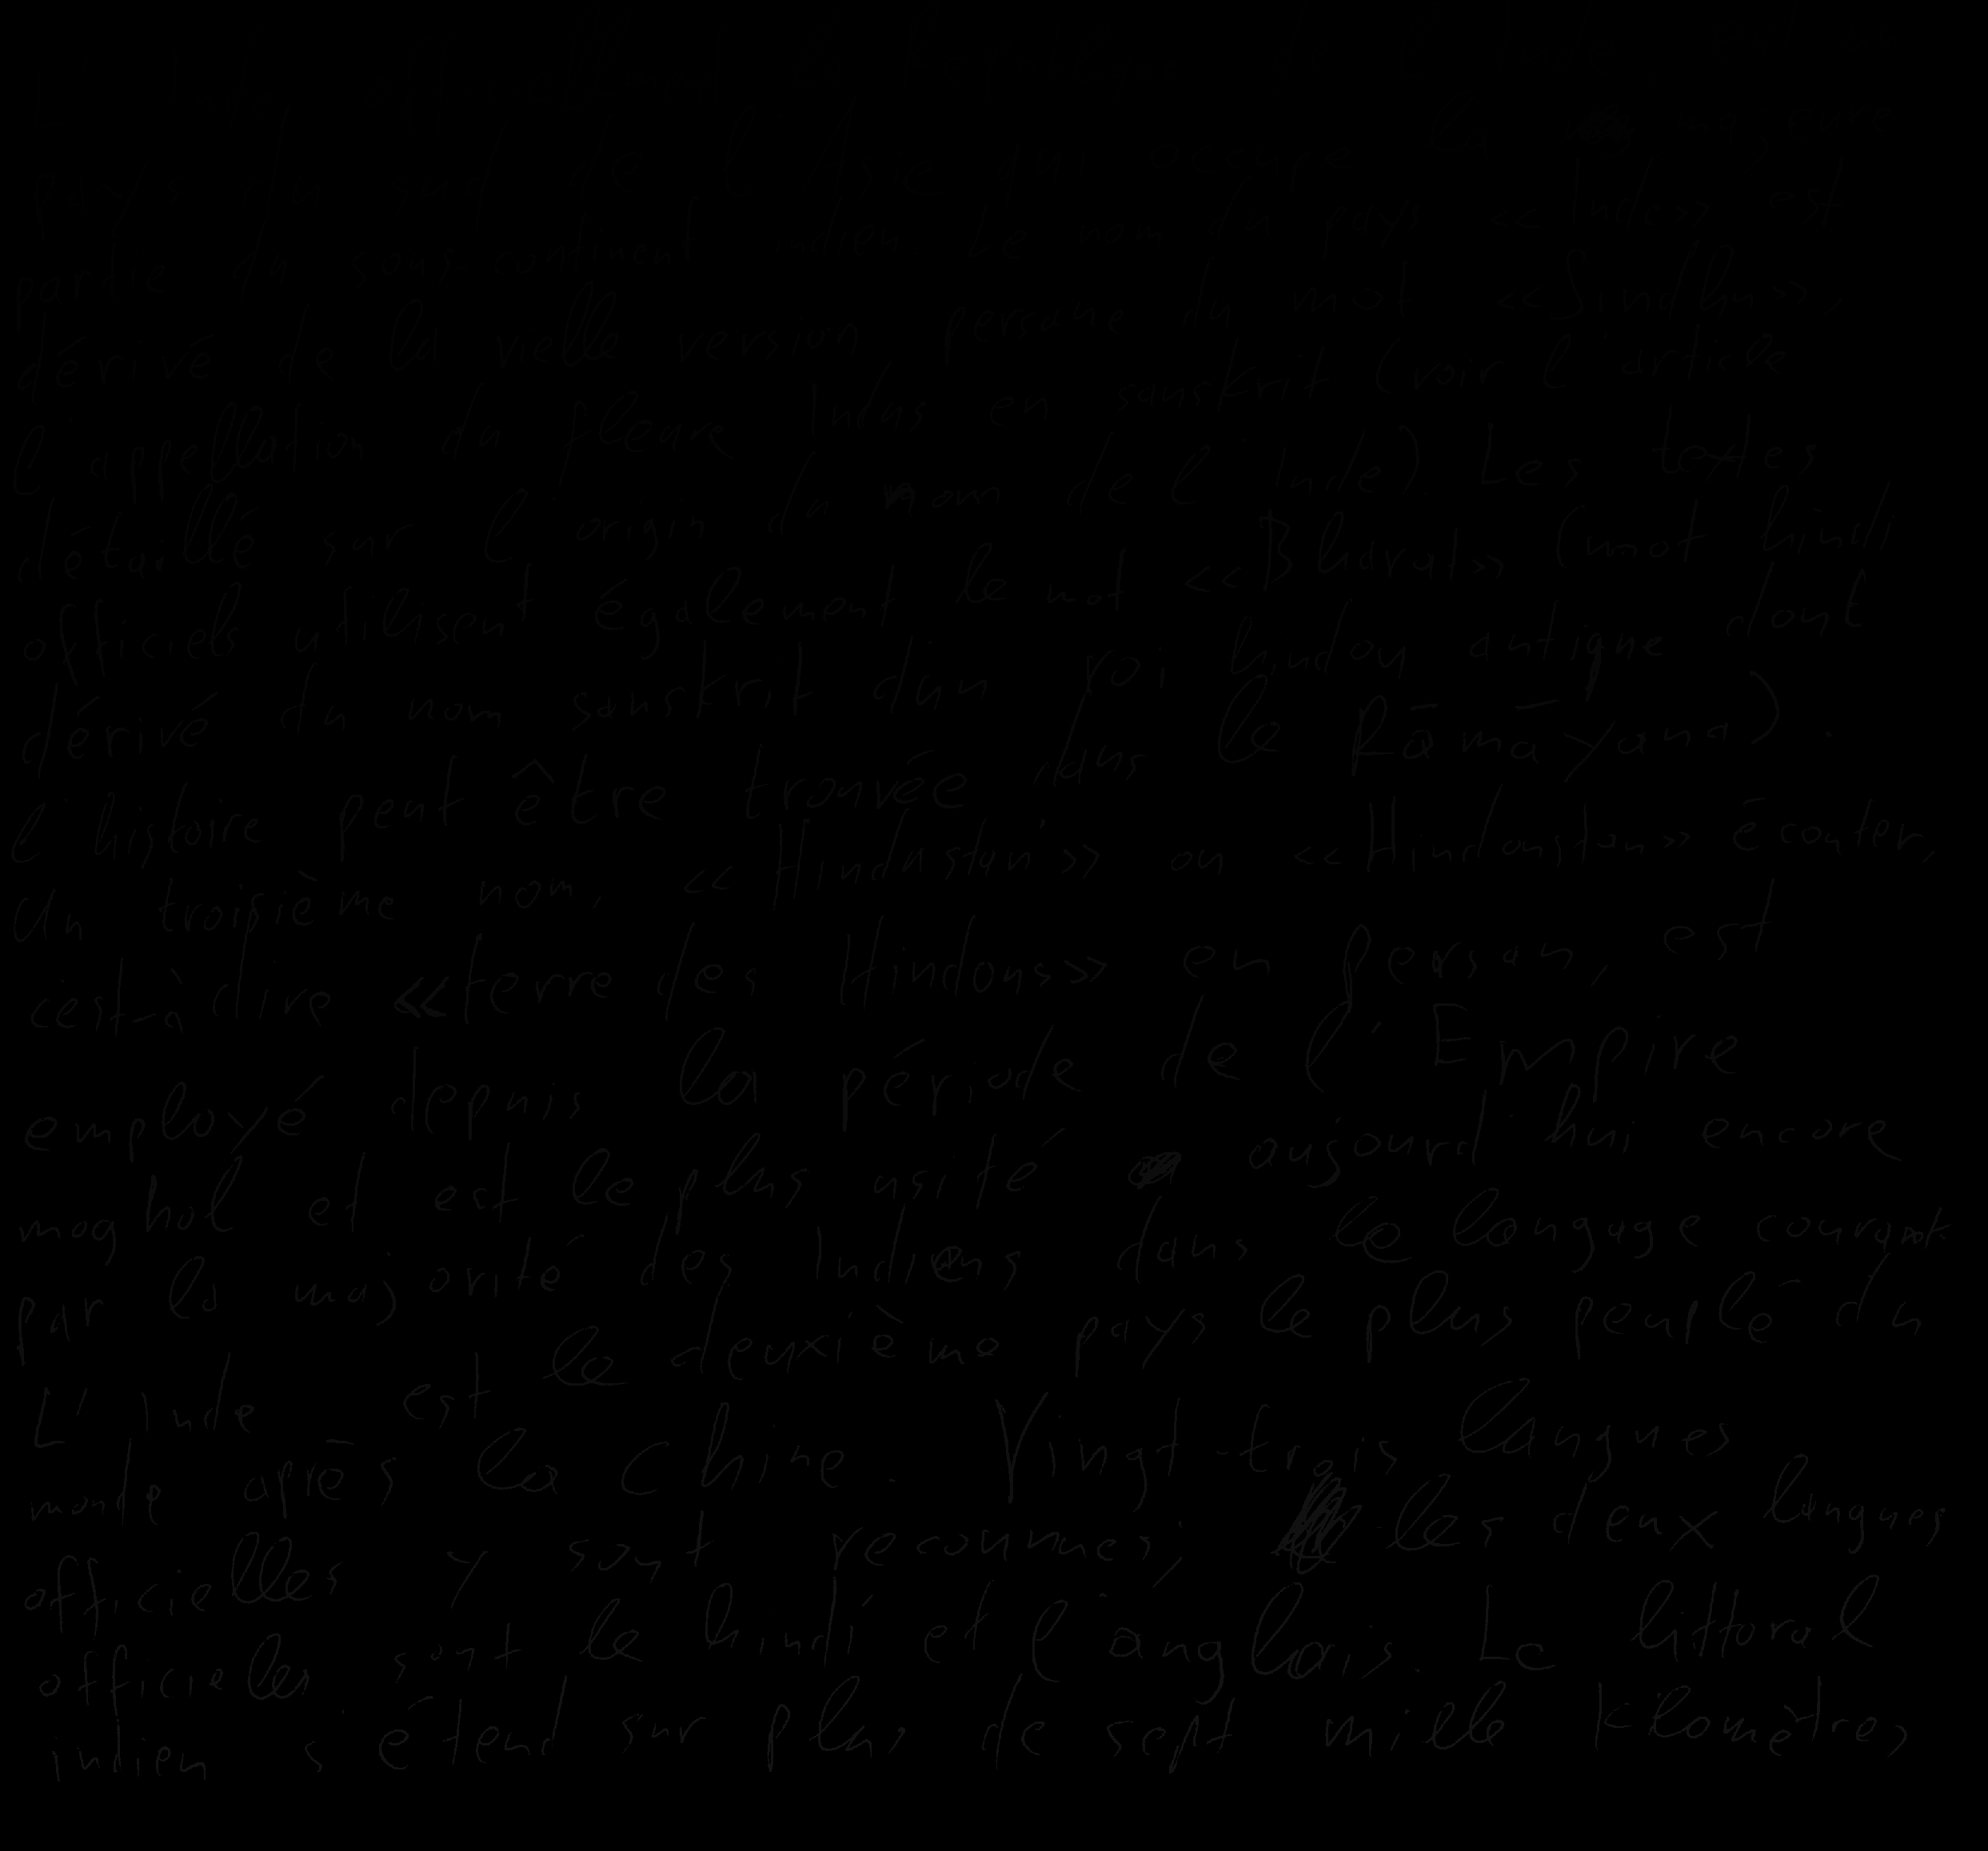 pays du sud de l'Asie qui occupe la majeure
partie du sous-continent indien Le nom du pays <<Inde>> est
dérivé de la vielle version persane du mot <<Sindhu>>,
l'appellation du fleuve Indus en sanskrit (voir l'article
détaillé sur l'origin du nom de l'Inde) Les textes
officiels utilisent également le mot <<Bhārat>> (mot hindi
dérivé du nom sanskrit d'un roi hindou antique dont
l'histoire peut être trouvée dans le Rāmāyana).
Un troisième nom, <<Hindustān>> ou <<Hindoustan>> écouter,
c'est-à dire <<terre des Hindous>> en persan, est
employé depuis la période de l'Empire
moghol et est le plus usité aujourd'hui encore
par la majorité des Indiens dans le langage courant.
L'Inde est le deuxième pays le plus peuplé du
monde après la Chine. Vingt-trois langues
officielles y sont reconnues, les deux langues
officieles sont le hindi et l'anglais. Le littoral
indien s'étend sur plus de sept mille kilomètres